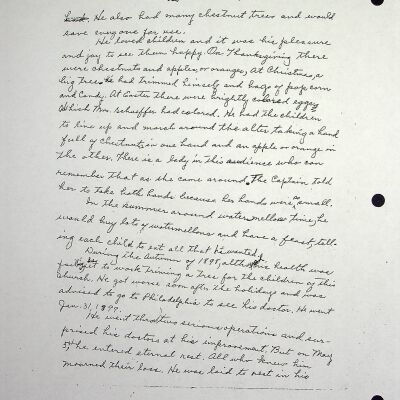 had. He also had many chestnut trees and would
save everyone for use.
He loved children and it was his pleasure
and joy to see them happy. On Thanksgiving there
were chestnuts and apples or oranges, At Christmas, a
big tree he had trimmed himself and bags of pop corn
and candy. At Easter there were brightly colored eggs
which Mrs. Schieffer had colored. He had the children
to line up and march around the alter taking a hand
full of chestnuts in one hand and an apple or orange in
the other. There is a lady in this audience who can
remember that as she came around, The Captain told
her to take both hands because her hands were so small.
In the summer around water mellow time, he
would buy lots of watermellons and have a feast, tell-
ing each child to eat all that he wanted.
During the Autumn of 1898, altho his health was
he set to work triming a tree for the children of this
church. He got worse soon after the holidays and was
advised to go to Philadelphia to see his doctor. He went
Jan. 31, 1899.
He went thro two serious operations and sur-
prised his doctors at his improvement. But on May
5th he entered eternal rest. All who knew him
mourned their loss. He was laid to rest in his